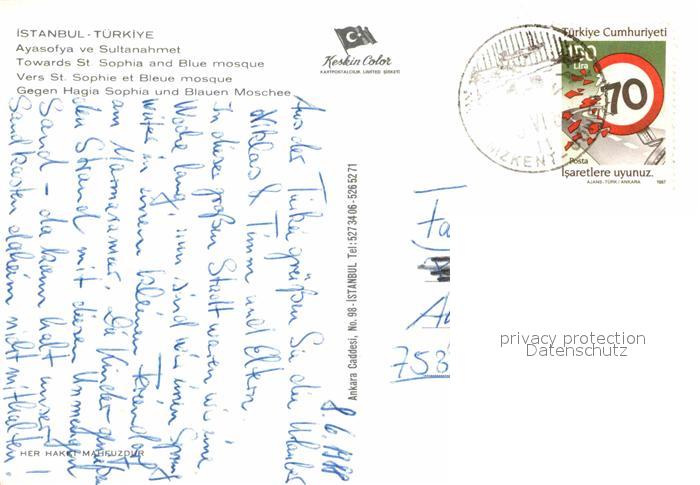 İSTANBUL - TÜRKİYE
Ayasofya ve Sultanahmet
Towards St. Sophia and Blue mosque
Vers St. Sophie et Bleue mosque
Gegen Hagia Sophia und Blauen Moschee
Keskin Color
KARTPOSTALCILIK LIMITED ŞİRKETİ
Türkiye Cumhuriyeti
Lira
70
Posta
İşaretlere uyunuz.
AJANS-TÜRK/ANKARA 1987
8.6.1988
Aus der Türkei grüßen Sie die Urlauber
Niklas & Timm und Eltern.
In dieser großen Stadt waren wir eine
Woche lang, nun sind wir einen
weiter in einem kleinen Feriendorf
am Marmarameer. Die Kinder genießen
den Strand mit diesen Unmengen
Sand - da kann halt unser
Sandkasten daheim nicht mithalten!
Ankara Caddesi, No. 98 - İSTANBUL Tel: 5273406 - 5265271
758
privacy protection
Datenschutz
HER HAKKI MAHFUZDUR